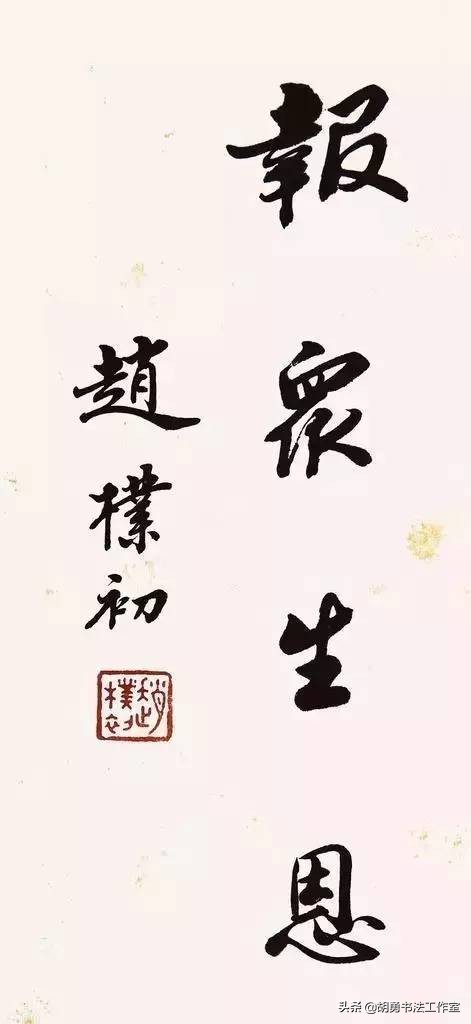 報眾生恩
趙樸初
趙樸初
头条 @胡勇书法工作室